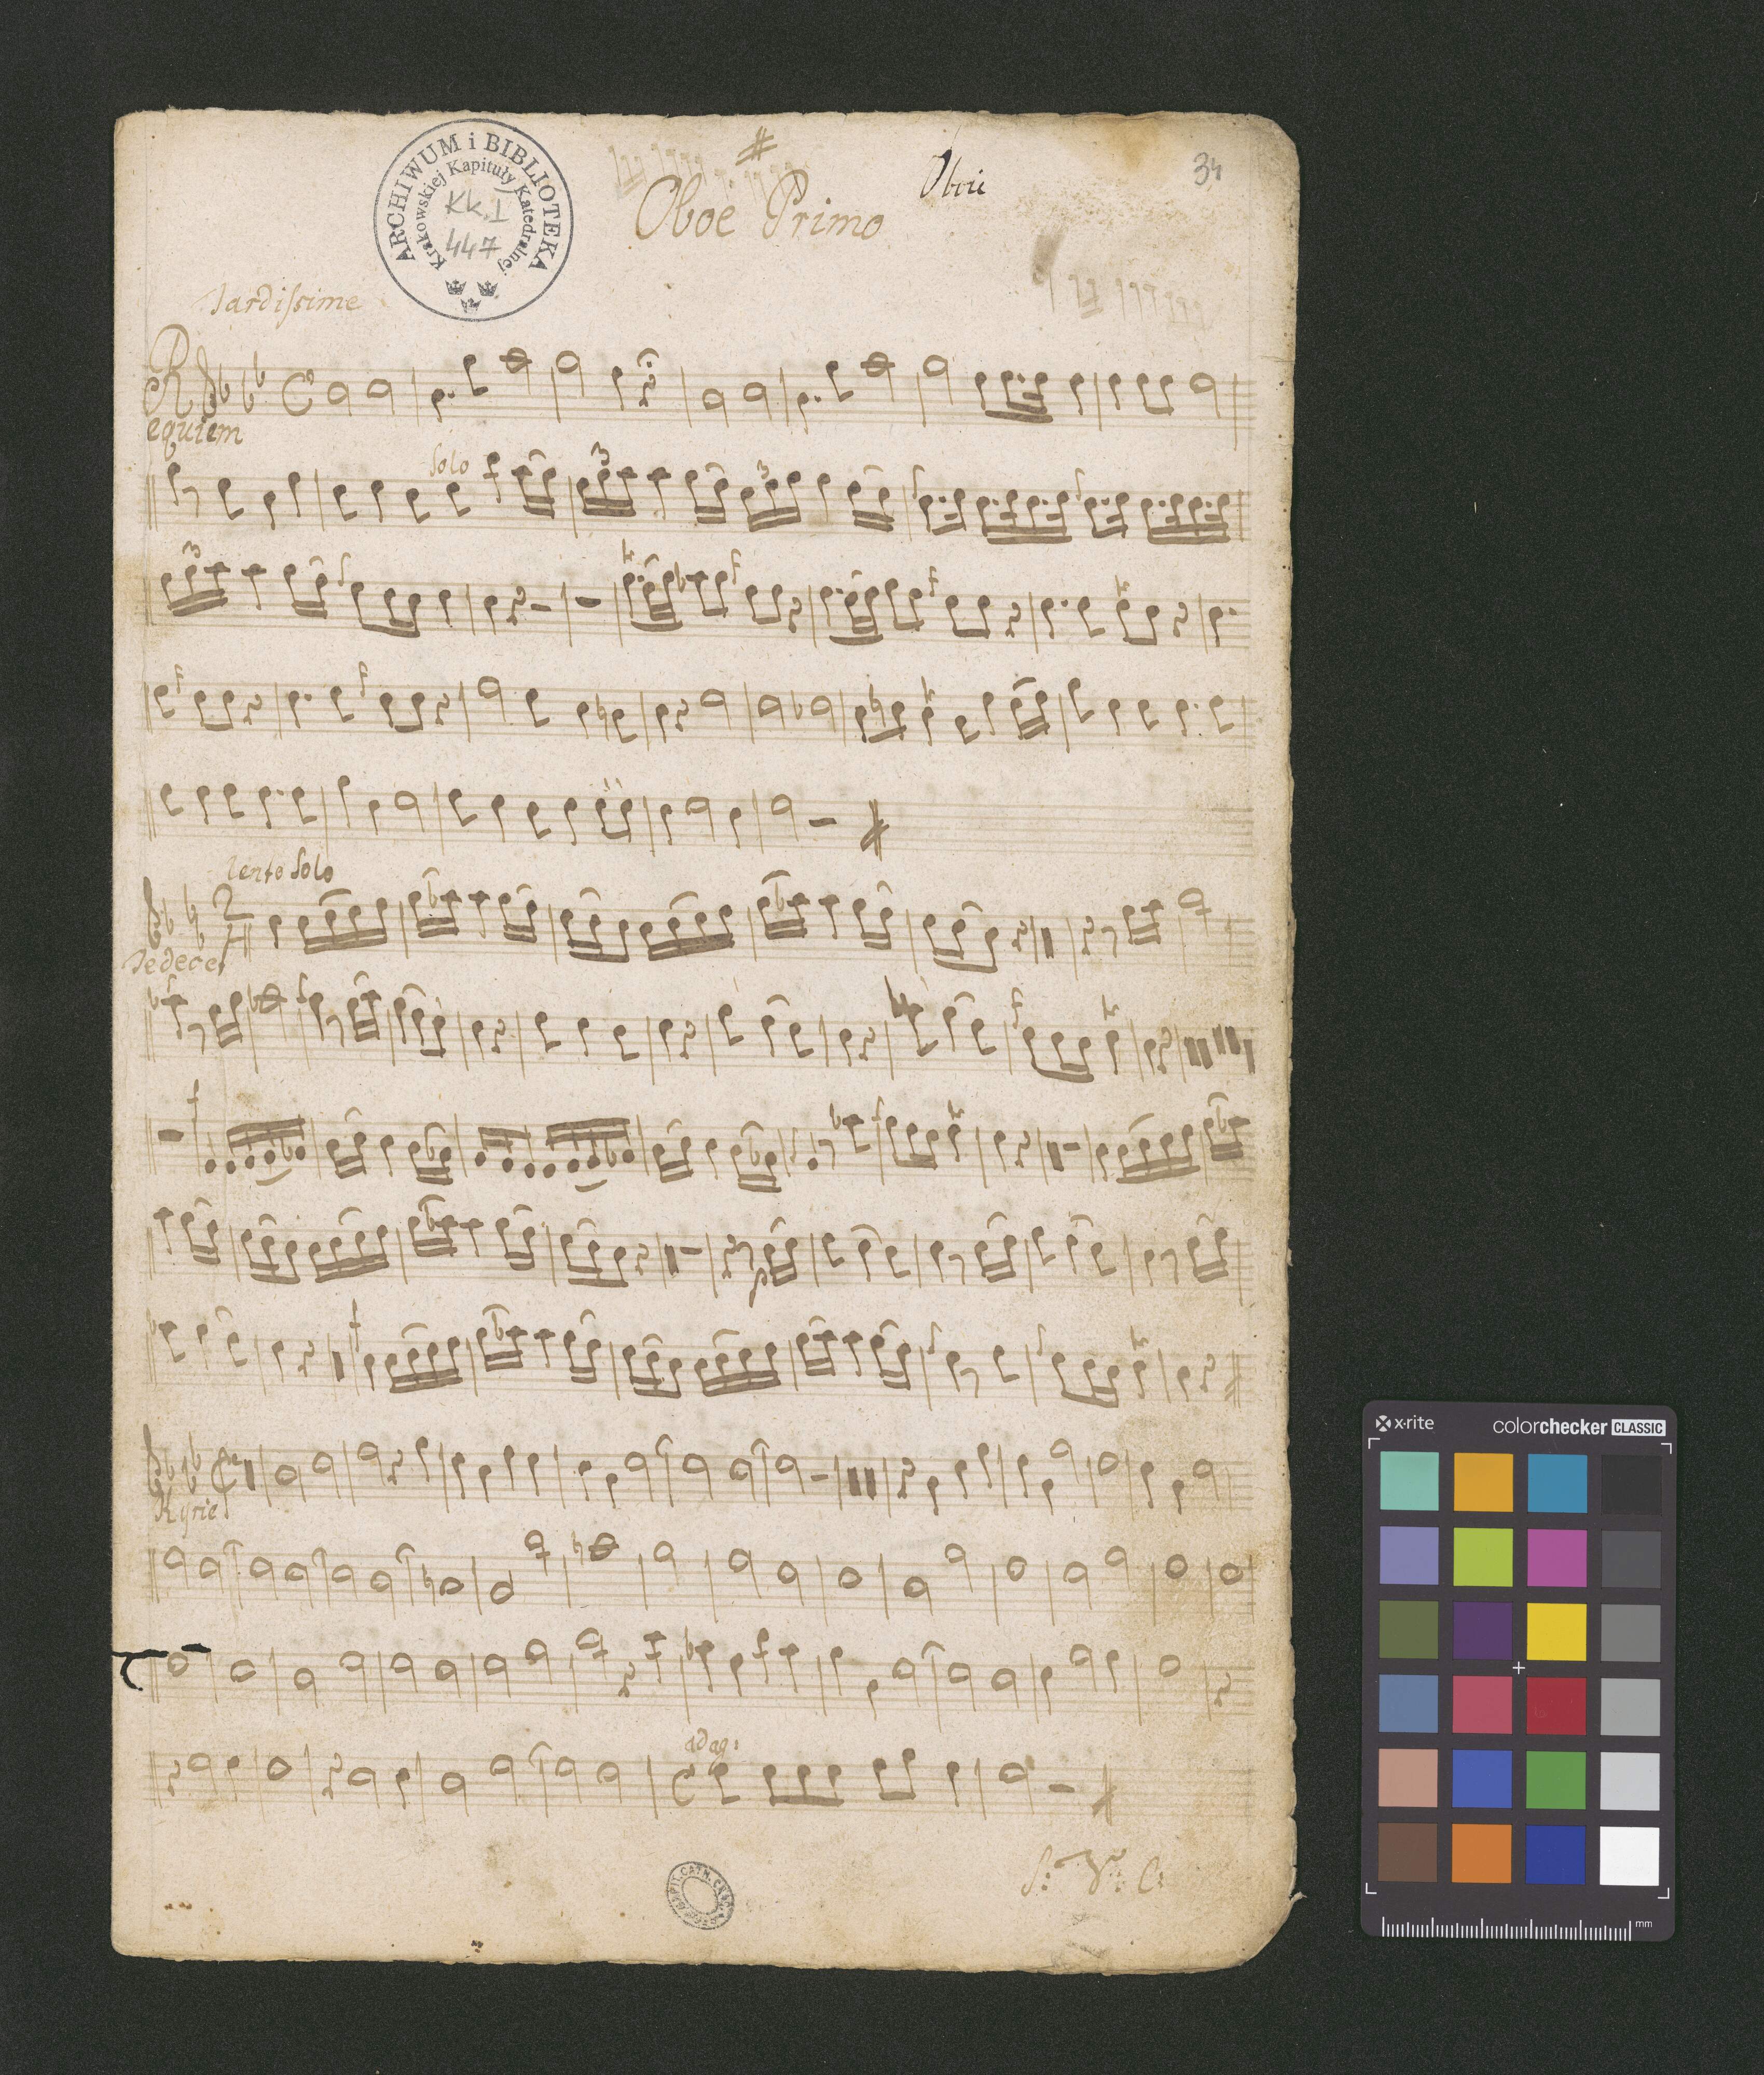 ARCHIWUM i BIBLIOTEKA
Krakowskiej Kapituły Katedralnej
KK. I
447
Oboe Primo
34
Tardissime
Requiem
Solo
3
3
3
lento Solo
Te decet
Kyrie
adag:
S: V: C:
x-rite
colorchecker CLASSIC
mm